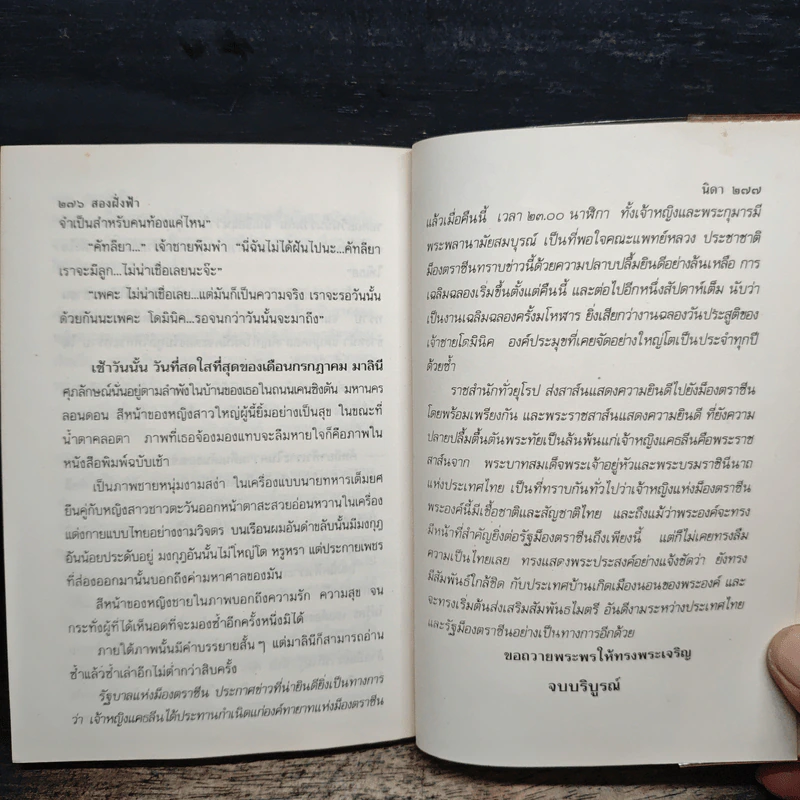 ๒๗๖ สองฝั่งฟ้า
จำเป็นสำหรับคนท้องแค่ไหน"
"คัทลิยา..." เจ้าชายพิมพำ "นี่ฉันไม่ได้ฝันไปนะ...คัทลิยา
เราจะมีลูก...ไม่น่าเชื่อเลยนะจ๊ะ"
"เพคะ ไม่น่าเชื่อเลย...แต่มันก็เป็นความจริง เราจะรอวันนั้น
ด้วยกันนะเพคะ โดมินิค...รอจนกว่าวันนั้นจะมาถึง"
เช้าวันนั้น วันที่สดใสที่สุดของเดือนกรกฎาคม มาลินี
ศุภลักษณ์นั่นอยู่ตามลำพังในบ้านของเธอในถนนเคนซิงตัน มหานคร
ลอนดอน สีหน้าของหญิงสาวใหญ่ผู้นี้ยิ้มอย่างเป็นสุข ในขณะที่
น้ำตาคลอตา ภาพที่เธอจ้องมองแทบจะลืมหายใจก็คือภาพใน
หนังสือพิมพ์ฉบับเช้า
เป็นภาพชายหนุ่มงามสง่า ในเครื่องแบบนายทหารเต็มยศ
ยืนคู่กับหญิงสาวชาวตะวันออกหน้าตาสะสวยอ่อนหวานในเครื่อง
แต่งกายแบบไทยอย่างงามวิจิตร บนเรือนผมอันดำขลับนั้นมีมงกุฎ
อันน้อยประดับอยู่ มงกุฎอันนั้นไม่ใหญ่โต หรูหรา แต่ประกายเพชร
ที่ส่องออกมานั้นบอกถึงค่ามหาศาลของมัน
สีหน้าของหญิงชายในภาพบอกถึงความรัก ความสุข จน
กระทั่งผู้ที่ได้เห็นอดที่จะมองซ้ำอีกครั้งหนึ่งมิได้
ภายใต้ภาพนั้นมีคำบรรยายสั้นๆ แต่มาลินีก็สามารถอ่าน
ซ้ำแล้วซ้ำเล่าอีกไม่ต่ำกว่าสิบครั้ง
รัฐบาลแห่งม็องตราซีน ประกาศข่าวที่น่ายินดียิ่งเป็นทางการ
ว่า เจ้าหญิงแคธลีนได้ประทานกำเนิดแก่องค์ทายาทแห่งม็องตราซีน
นิดา ๒๗๗
แล้วเมื่อคืนนี้ เวลา ๒๓.๐๐ นาฬิกา ทั้งเจ้าหญิงและพระกุมารมี
พระพลานามัยสมบูรณ์ เป็นที่พอใจคณะแพทย์หลวง ประชาชาติ
ม็องตราซีนทราบข่าวนี้ด้วยความปลาบปลื้มยินดีอย่างล้นเหลือ การ
เฉลิมฉลองเริ่มขึ้นตั้งแต่คืนนี้ และต่อไปอีกหนึ่งสัปดาห์เต็ม นับว่า
เป็นงานเฉลิมฉลองครั้งมโหฬาร ยิ่งเสียกว่างานฉลองวันประสูติของ
เจ้าชายโดมินิค องค์ประมุขที่เคยจัดอย่างใหญ่โตเป็นประจำทุกปี
ด้วยซ้ำ
ราชสำนักทั่วยุโรป ส่งสาส์นแสดงความยินดีไปยังม็องตราซีน
โดยพร้อมเพรียงกัน และพระราชสาส์นแสดงความยินดี ที่ยังความ
ปลายปลื้มตื้นตันพระทัยเป็นล้นพ้นแก่เจ้าหญิงแคธลีนคือพระราช
สาส์นจาก พระบาทสมเด็จพระเจ้าอยู่หัวและพระบรมราชินีนาถ
แห่งประเทศไทย เป็นที่ทราบกันทั่วไปว่าเจ้าหญิงแห่งม็องตราซีน
พระองค์นี้มีเชื้อชาติและสัญชาติไทย และถึงแม้ว่าพระองค์จะทรง
มีหน้าที่สำคัญยิ่งต่อรัฐม็องตราซีนถึงเพียงนี้ แต่ก็ไม่เคยทรงลืม
ความเป็นไทยเลย ทรงแสดงพระประสงค์อย่างแจ้งชัดว่า ยังทรง
มีสัมพันธ์ใกล้ชิด กับประเทศบ้านเกิดเมืองนอนของพระองค์ และ
จะทรงเริ่มต้นส่งเสริมสัมพันธไมตรี อันดีงามระหว่างประเทศไทย
และรัฐม็องตราซีนอย่างเป็นทางการอีกด้วย
ขอถวายพระพรให้ทรงพระเจริญ
จบบริบูรณ์